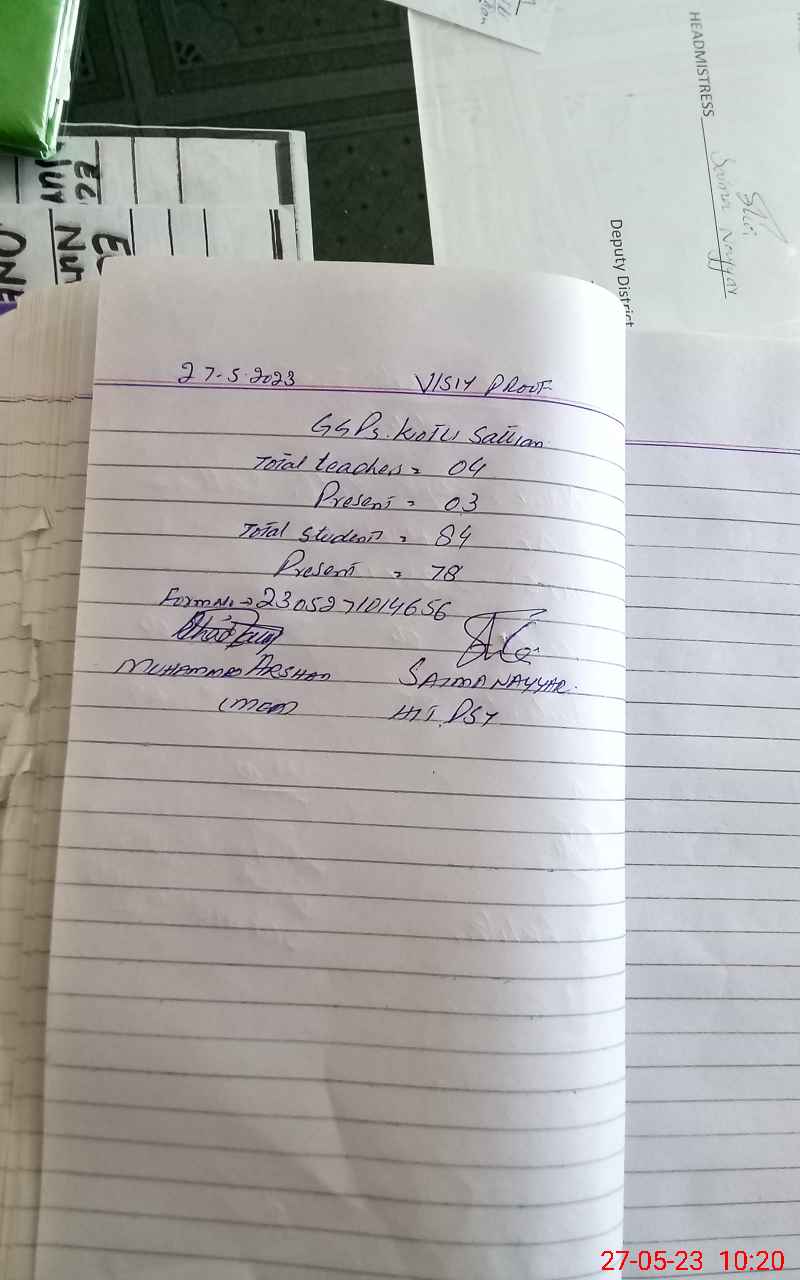 HEADMISTRESS
Saima Nayyar
Deputy District
27-5-2023 VISIY PROOF
GGPs. Kotli Sattian
Total teachers = 04
Present = 03
Total student = 84
Present = 78
Form No → 2305271014656
MUHAMMAD ARSHAD SAIMA NAYYAR
(MEA) HT PST
27-05-23 10:20